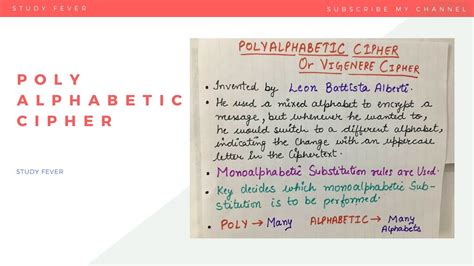 STUDY FEVER
SUBSCRIBE MY CHANNEL
POLY
ALPHABETIC
CIPHER
STUDY FEVER
POLYALPHABETIC CIPHER
Or VIGENERE CIPHER
• Invented by Leon Battista Alberti.
• He used a mixed alphabet to encrypt a
message, but whenever he wanted to,
he would switch to a different alphabet,
indicating the change with an uppercase
letter in the Ciphertext.
• Monoalphabetic Substitution rules are Used.
• Key decides which monoalphabetic Sub-
stitution is to be performed.
• POLY → Many ALPHABETIC → Many
Alphabets